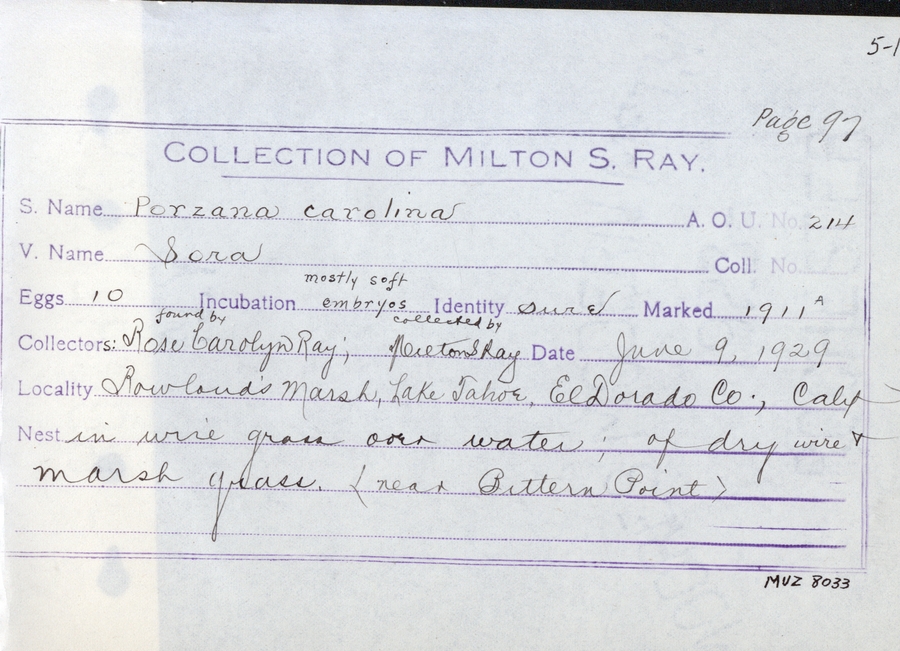 5-1
Page 97
COLLECTION OF MILTON S. RAY.
S. Name Porzana carolina A. O. U. No. 214
V. Name Sora Coll. No.
mostly soft
Eggs 10 Incubation embryos Identity sure Marked 1911 A
found by collected by
Collectors: Rose Carolyn Ray; Milton S Ray Date June 9, 1929
Locality Rowland's Marsh, Lake Tahoe, El Dorado Co., Calif
Nest in wire grass over water; of dry wire &
marsh grass. (near Bittern Point)
MVZ 8033